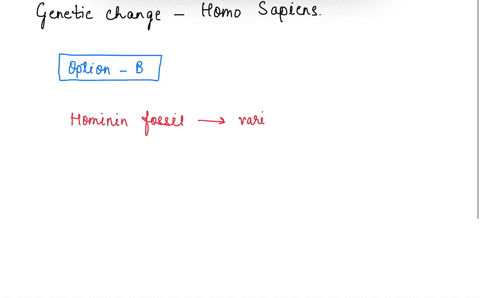 Genetic change - Homo Sapiens.
Option - B
Hominin fossil → vari